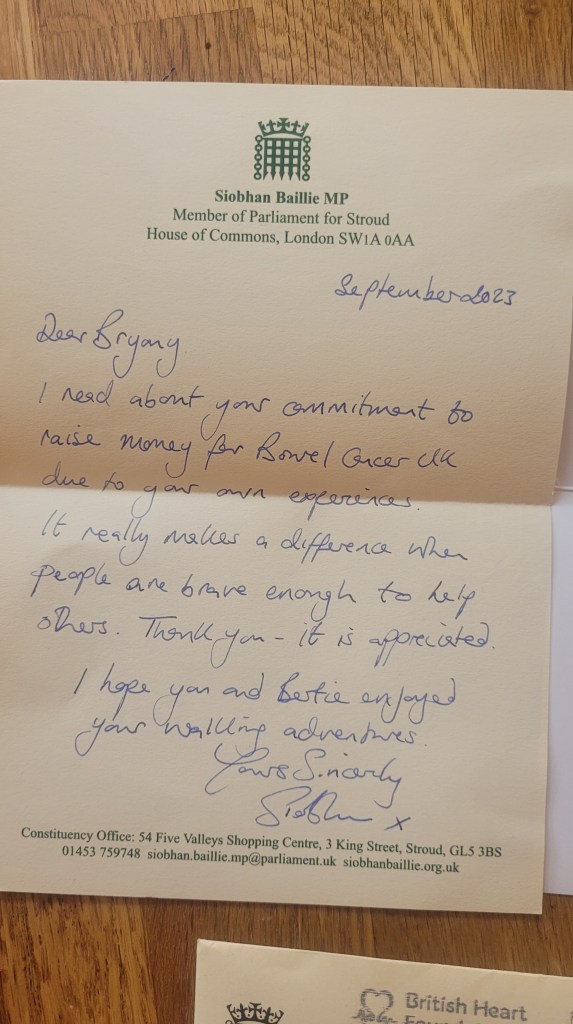 Siobhan Baillie MP
Member of Parliament for Stroud
House of Commons, London SW1A 0AA
September 2023
Dear Bryony
I read about your commitment to
raise money for Bowel Cancer UK
due to your own experiences.
It really makes a difference when
people are brave enough to help
others. Thank you – it is appreciated.
I hope you and Bertie enjoyed
your walking adventures.
Yours Sincerely
Siobhan x
Constituency Office: 54 Five Valleys Shopping Centre, 3 King Street, Stroud, GL5 3BS
01453 759748 siobhan.baillie.mp@parliament.uk siobhanbaillie.org.uk
British Heart